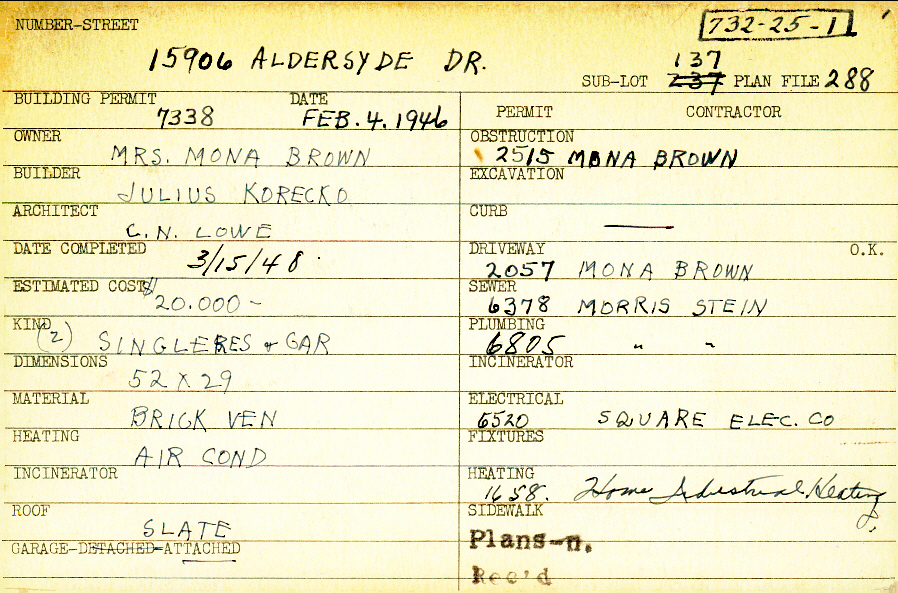 NUMBER-STREET
732-25-1
15906 ALDERSYDE DR.
137
SUB-LOT 237 PLAN FILE 288
BUILDING PERMIT DATE
7338 FEB. 4. 1946
PERMIT CONTRACTOR
OWNER
MRS. MONA BROWN
OBSTRUCTION
2515 MONA BROWN
BUILDER
JULIUS KORECKO
EXCAVATION
ARCHITECT
C.N. LOWE
CURB
—
DATE COMPLETED
3/15/48
DRIVEWAY O.K.
2057 MONA BROWN
ESTIMATED COST $
20.000 –
SEWER
6378 MORRIS STEIN
KIND
(2) SINGLE RES + GAR
PLUMBING
6805 " "
DIMENSIONS
52 X 29
INCINERATOR
MATERIAL
BRICK VEN
ELECTRICAL
6520 SQUARE ELEC. CO
HEATING
AIR COND
FIXTURES
INCINERATOR
HEATING
1658. Home Industrial Heating
ROOF
SLATE
SIDEWALK
GARAGE-DETACHED-ATTACHED
Plans-n.
Rec'd